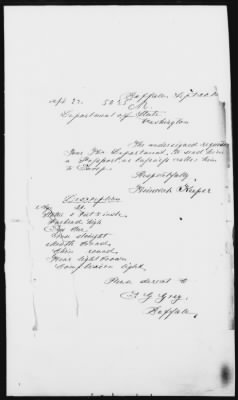 Buffalo, Sept 20
Sept 22. 50 M.
Department of State
Washington
The undersigned requests
Your Department to send him
a Passport as business calls him
to Europe.
Respectfully
Heinrich
Description
Age
Stature 5 Feet 5 inch
Forehead high
Eyes blue
Nose straight
Mouth broad
Chin round
Hair light brown
Complexion light.
Please direct to
Buffalo